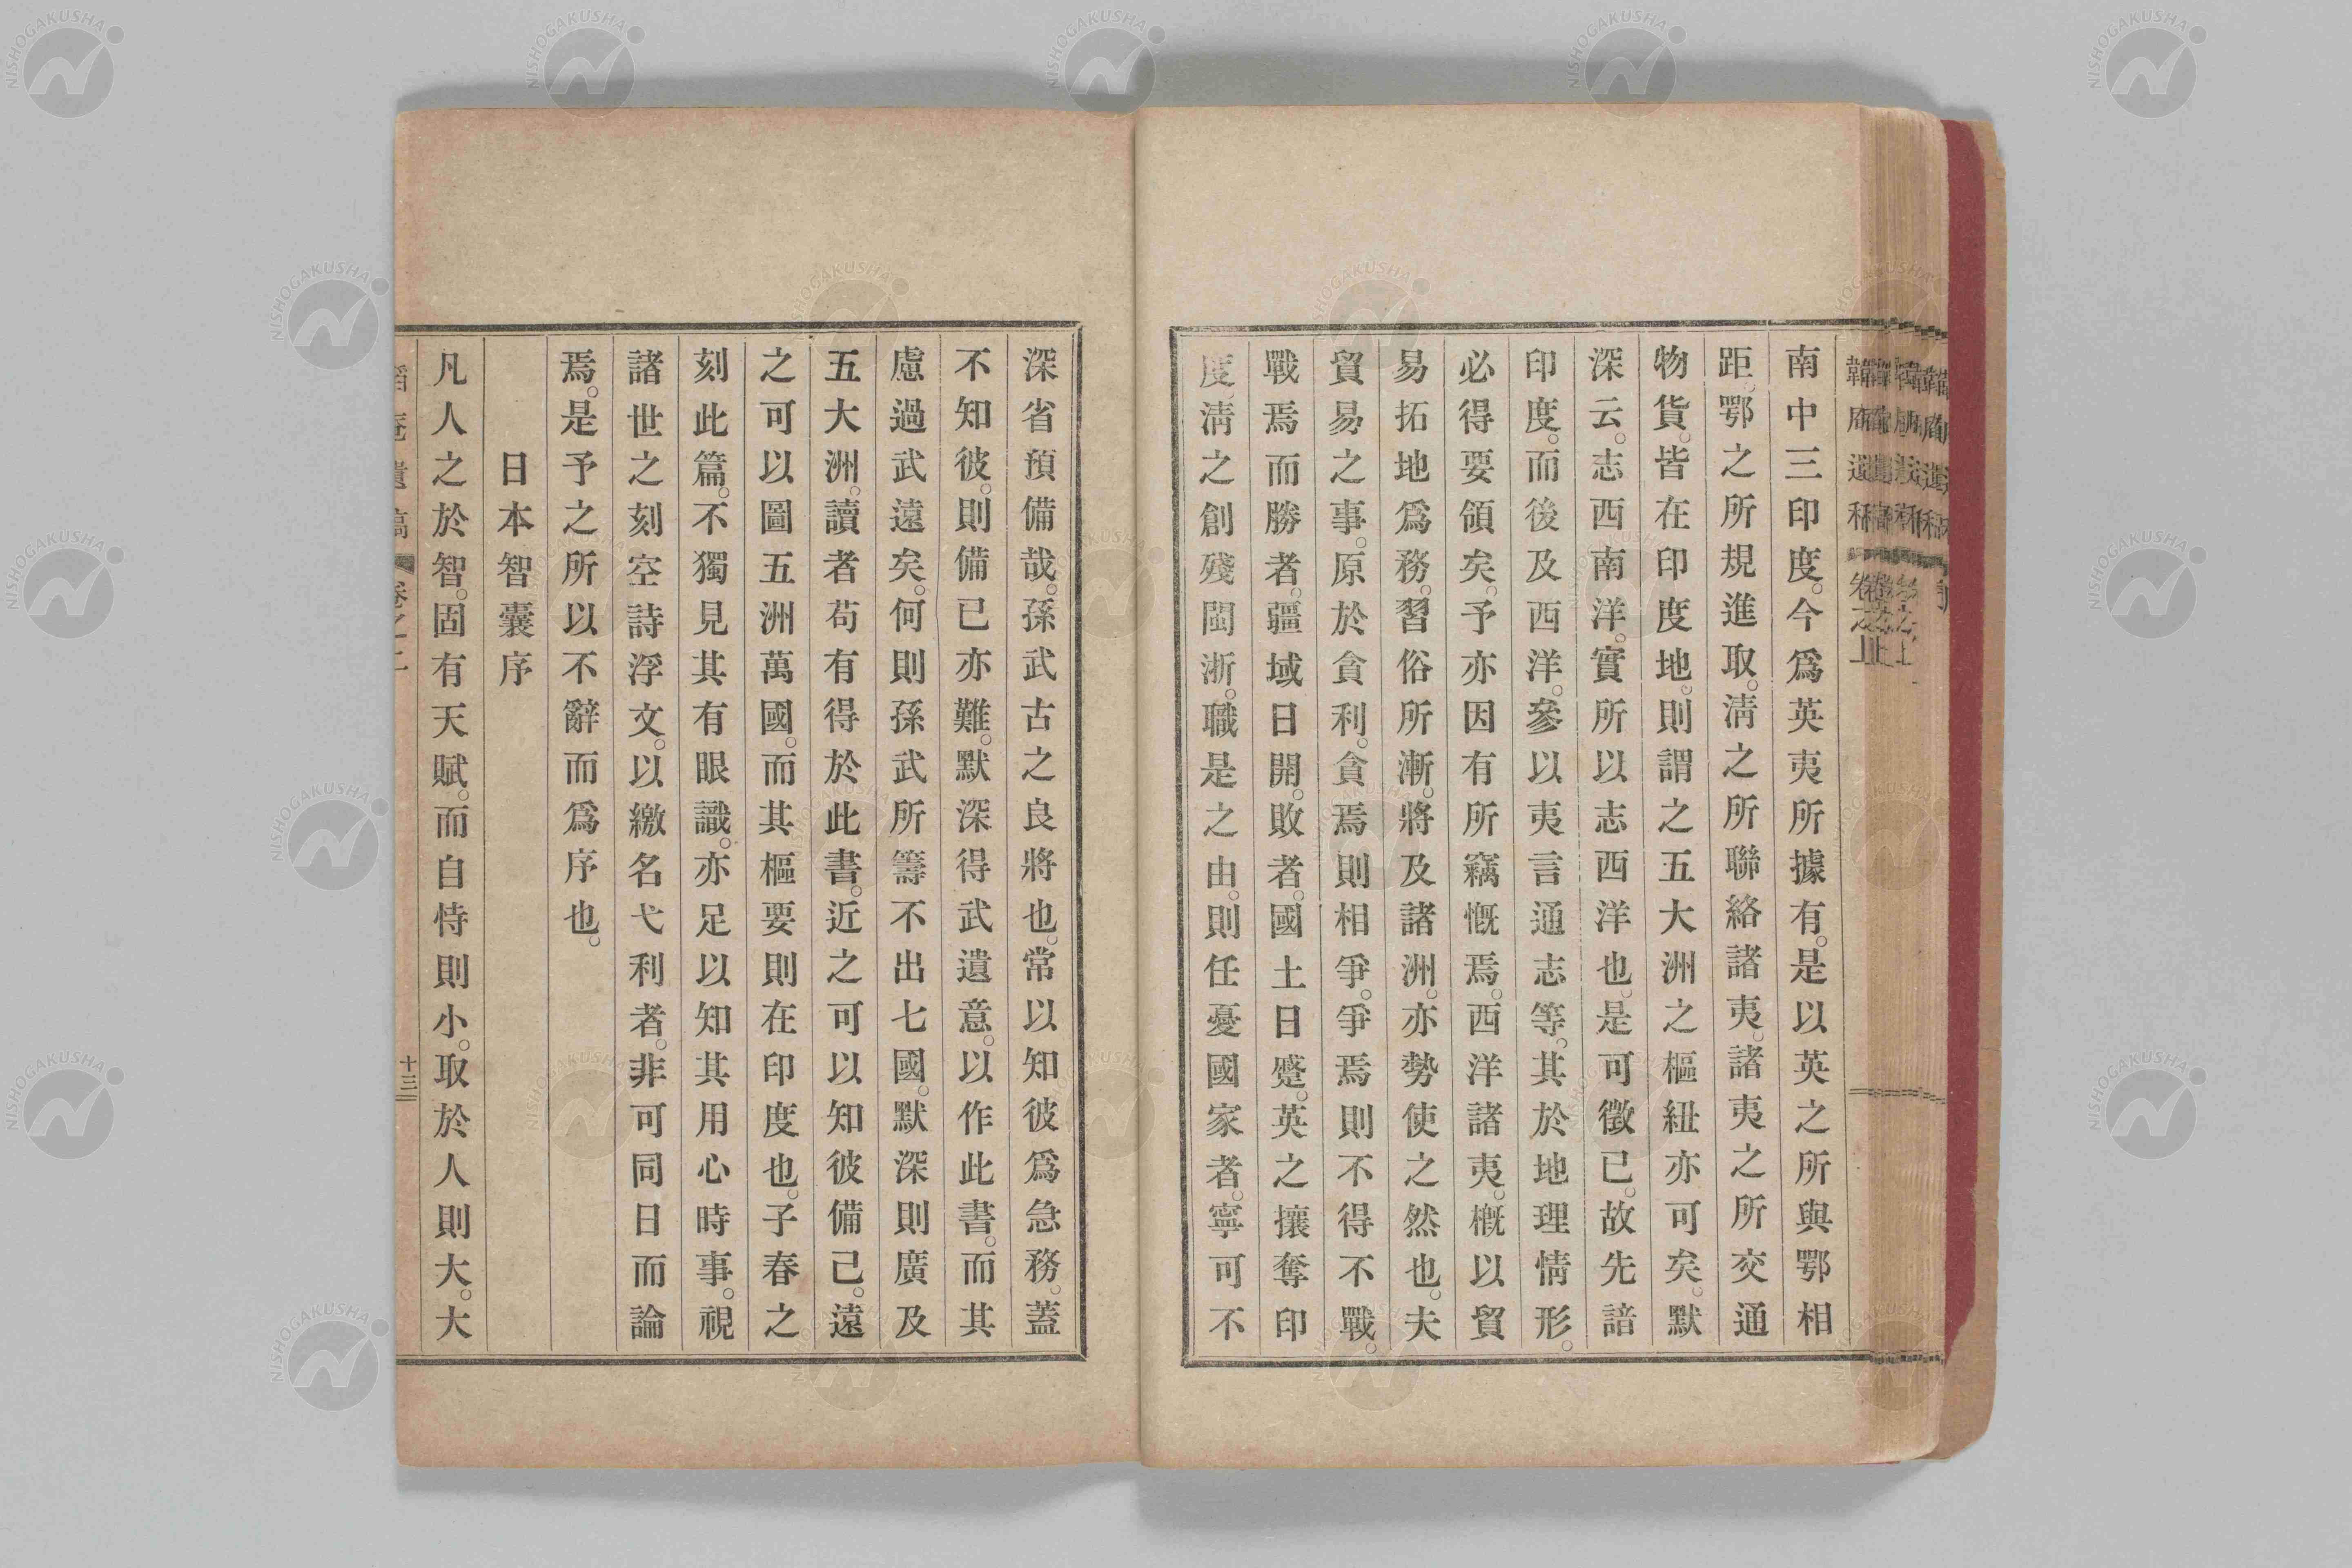 南中三印度。今爲英夷所據有。是以英之所與鄂相
距。鄂之所規進取。淸之所聯絡諸夷。諸夷之所交通
物貨。皆在印度地。則謂之五大洲之樞紐亦可矣。默
深云。志西南洋。實所以志西洋也。是可徵已。故先諳
印度。而後及西洋。參以夷言通志等。其於地理情形。
必得要領矣。予亦因有所竊慨焉。西洋諸夷。槪以貿
易拓地爲務。習俗所漸。將及諸洲。亦勢使之然也。夫
貿易之事。原於貪利。貪焉則相爭。爭焉則不得不戰。
戰焉而勝者。疆域日開。敗者。國土日蹙。英之攘奪印
度。淸之創殘閩浙。職是之由。則任憂國家者。寧可不
深省預備哉。孫武古之良將也。常以知彼爲急務。蓋
不知彼。則備已亦難。默深得武遺意。以作此書。而其
慮過武遠矣。何則孫武所籌不出七國。默深則廣及
五大洲。讀者苟有得於此書。近之可以知彼備己。遠
之可以圖五洲萬國。而其樞要則在印度也。子春之
刻此篇。不獨見其有眼識。亦足以知其用心時事。視
諸世之刻空詩浮文。以繳名弋利者。非可同日而論
焉。是予之所以不辭而爲序也。
日本智囊序
凡人之於智。固有天賦。而自恃則小。取於人則大。大
十三
NISHOGAKUSHA